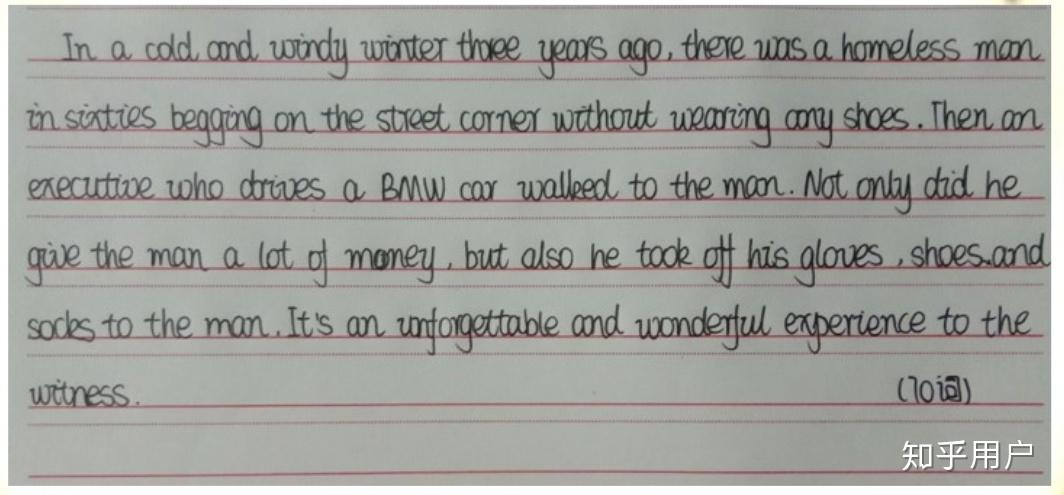 In a cold and windy winter three years ago, there was a homeless man
in sixties begging on the street corner without wearing any shoes. Then an
executive who drives a BMW car walked to the man. Not only did he
give the man a lot of money, but also he took off his gloves, shoes and
socks to the man. It's an unforgettable and wonderful experience to the
witness. (70词)
知乎用户